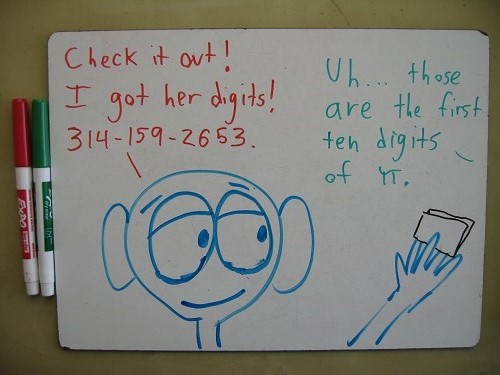 Check it out!
I got her digits!
314-159-2653.
Uh... those
are the first
ten digits
of π.
EXPO